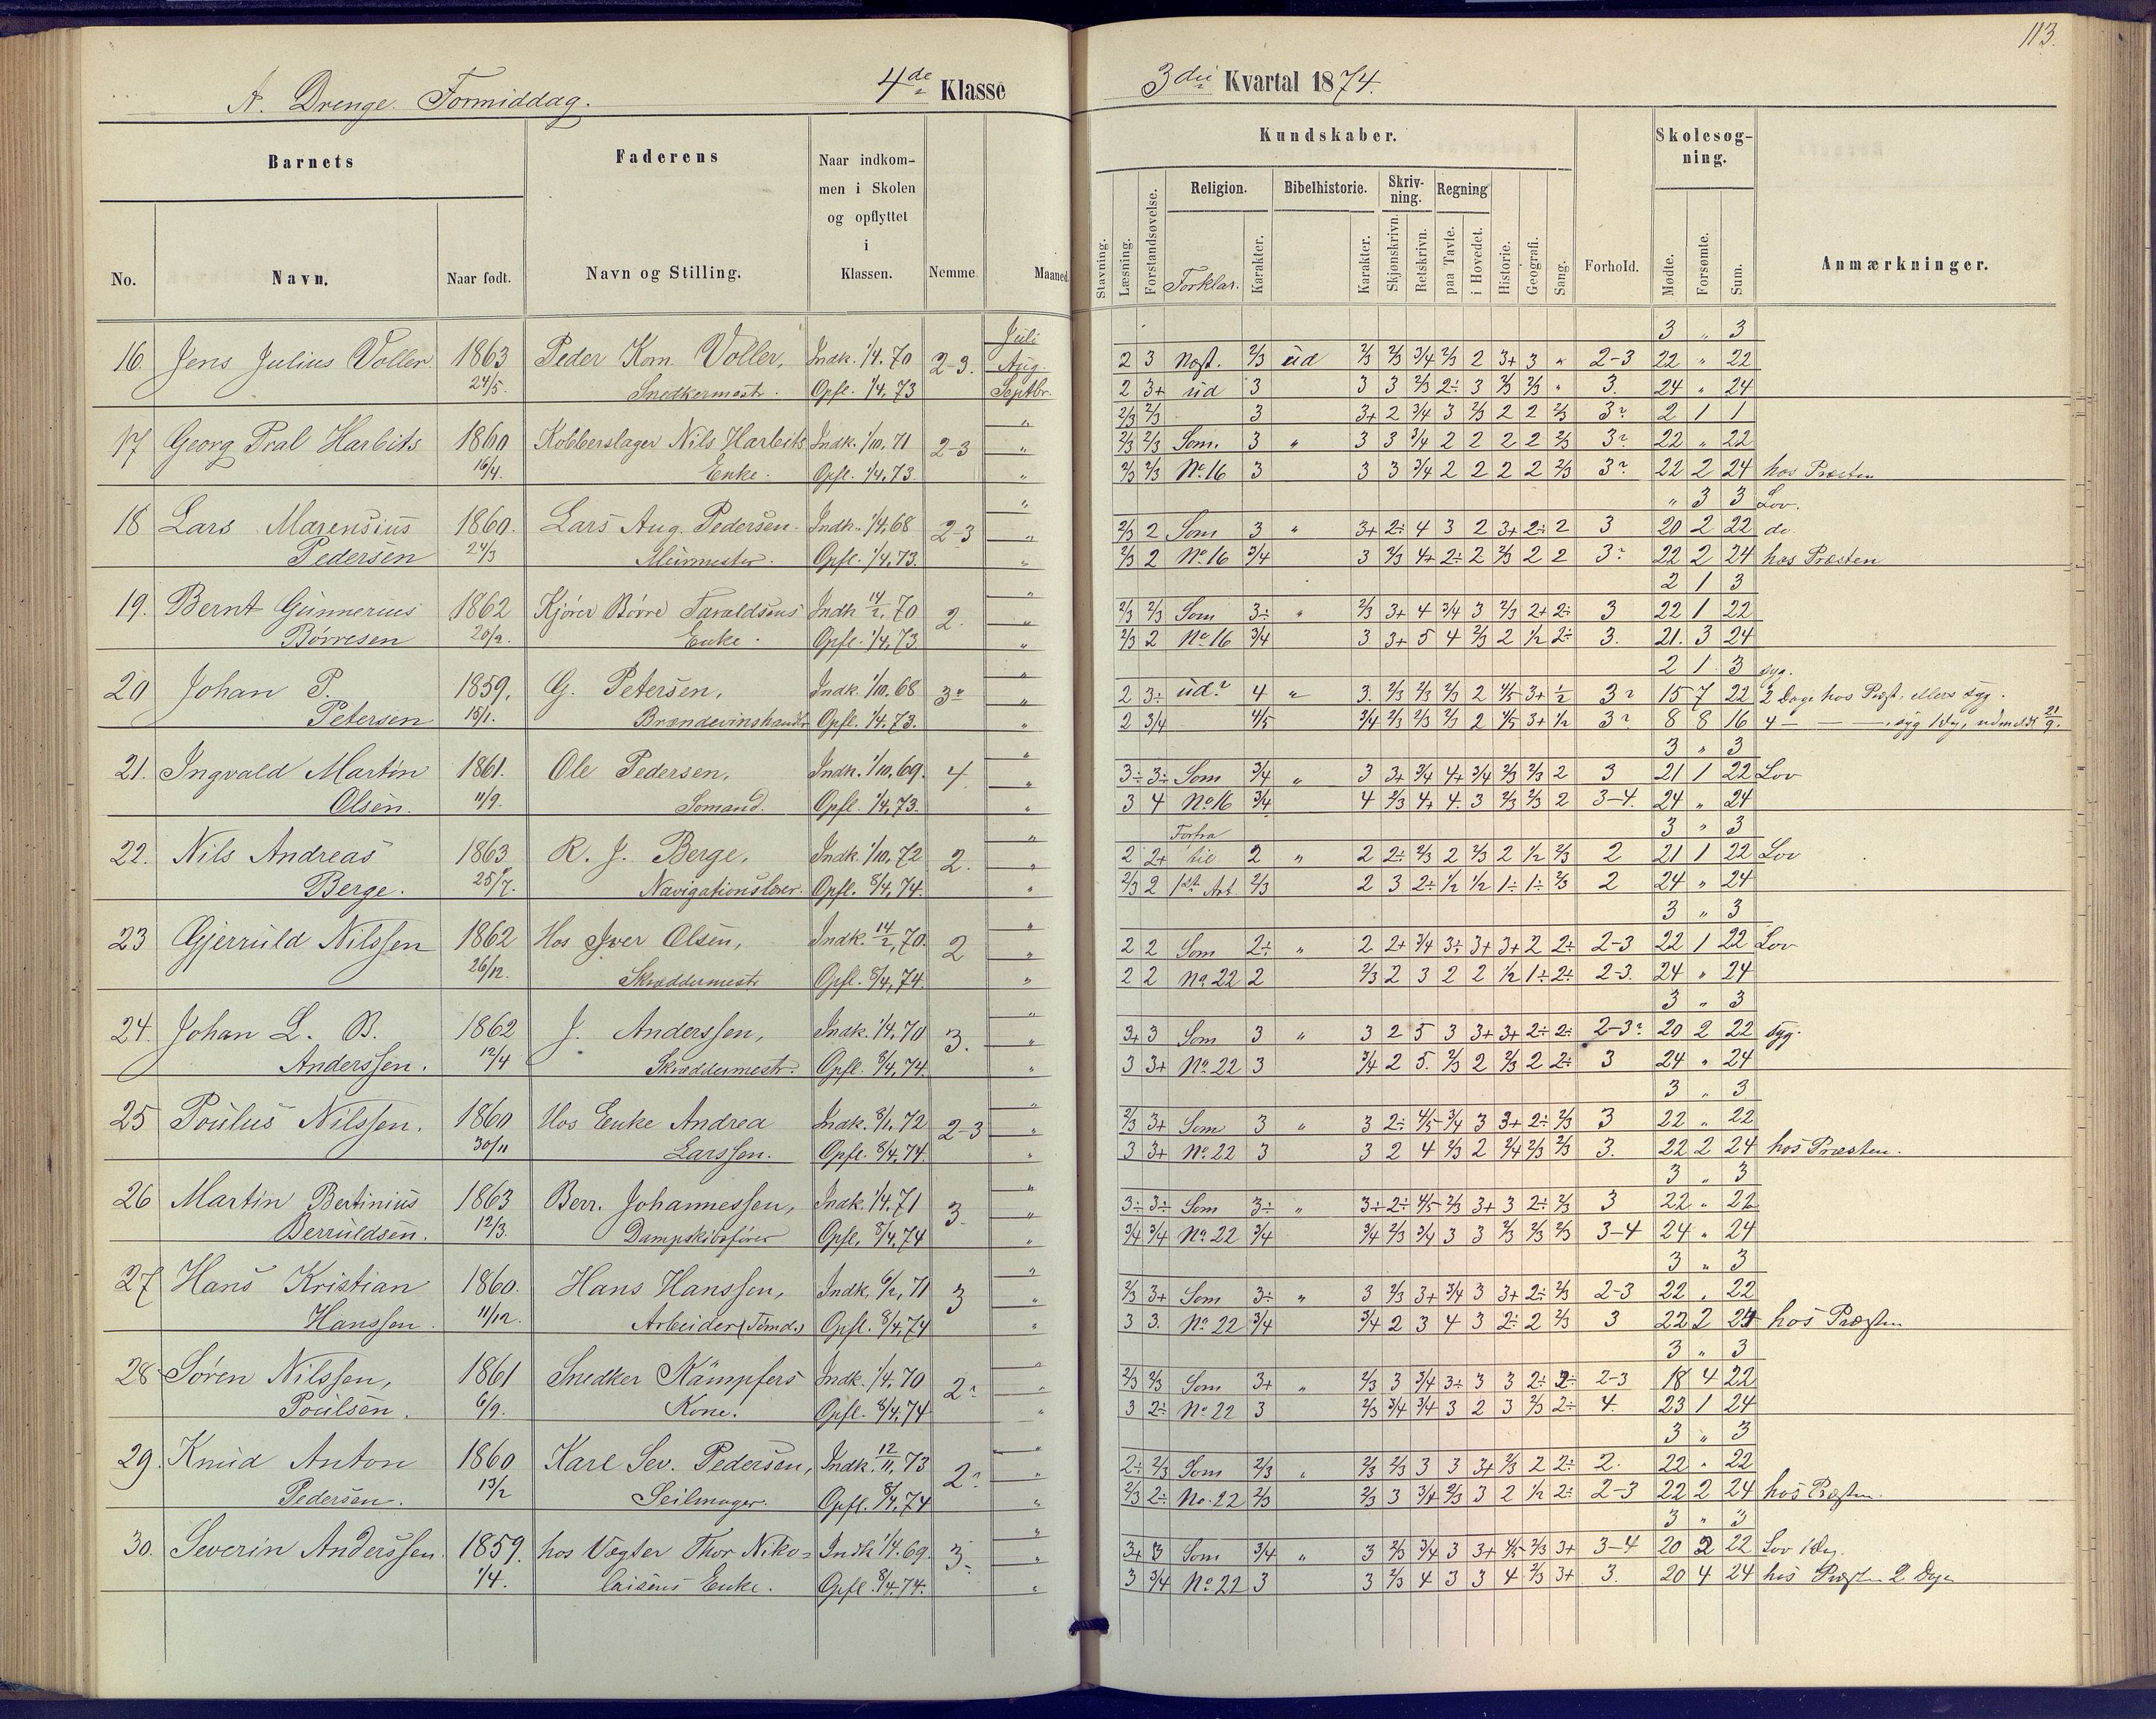 113.
A. Drenge. Formiddag. 4de Klasse
3die Kvartal 1874.
Barnets
Faderens
Naar indkommen i Skolen og opflyttet i Klassen.
Nemme.
Maaned
Kundskaber.
Skolesøgning.
No. Navn. Naar født. Navn og Stilling.
Stavning. Læsning. Forstandsøvelse. Religion. Forklar. Karakter. Bibelhistorie. Karakter. Skrivning. Skjønskrivn. Retskrivn. Regning paa Tavle. i Hovedet. Historie. Geografi. Sang. Forhold. Mødte. Forsømte. Sum. Anmærkninger.
Juli 3 " 3
16. Jens Julius Voller. 1863 Peder Korn. Voller, Indk. 1/4. 70 2-3. Aug. 2 3 2/3 ud 2/3 2/3 3/4 2/3 2 3+ 3 " 2-3 22 " 22
24/5. Snedkermestr. Opfl. 1/4, 73 Septbr. 2 3+ ud 3 3 3 2/3 2÷ 3 2/3 2/3 " 3. 24 " 24
2/3 2/3 3 3+ 2 3/4 3 2/3 2 2 2/3 3? 2 1 1
17 Georg Pral Harbits 1860 Kobberslager Nils Harbits Indk. 1/10, 71 2-3 " 2/3 2/3 Som. 3 " 3 3 3/4 2 2 2 2 2/3 3? 22 " 22
16/4. Enke. Opfl. 1/4, 73. " 2/3 2/3 No. 16 3 3 3 3/4 2 2 2 2 2/3 3? 22 2 24 hos Præsten
" " 3 3 Lov.
18 Lars Marensius 1860. Lars Aug. Pedersen. Indk. 1/4, 68 2-3 " 2/3 2 Som 3 " 3+ 2÷ 4 3 2 3+ 2÷ 2 3 20 2 22 do
Pedersen 24/3 Muurmester. Opfl. 1/4, 73. " 2/3 2 No. 16 3/4 3 2/3 4+ 2÷ 2 2/3 2 2 3? 22 2 24 hos Præsten
" 2 1 3
19. Bernt Gunnerius 1862 Kjører Børre Taraldsens Indk 14/2, 70 2. " 2/3 2/3 Som 3÷ " 2/3 3+ 4 3/4 3 2/3 2+ 2÷ 3 22 1 22
Børresen 20/2. Enke. Opfl. 1/4, 73. " 2/3 2 No. 16 3/4 3 3+ 5 4 2/3 2 1/2 2÷ 3. 21. 3 24
" 2 1 3 syg.
20 Johan P. 1859. G. Petersen, Indk. 1/10, 68 " 2 3÷ ud? 4 " 3. 2/3 2/3 2/3 2 4/5 3+ 1/2 3? 15 7 22 2 Dage hos Præst. ellers syg.
Petersen 15/1. Brændevinshandlr Opfl. 1/4, 73. " 2 3/4 4/5 3/4 2/3 2/3 2/3 2 4/5 3+ 1/2 3? 8 8 16 4 — — syg 1 Dg, udmeldt 21/9.
" 3 " 3
21. Ingvald Martin 1861. Ole Pedersen, Indk. 1/10, 69. 4. " 3÷ 3÷ Som 3/4 " 3 3+ 3/4 4+ 3/4 2/3 2/3 2 3 21 1 22 Lov
Olsen. 11/9. Sømand. Opfl. 1/4, 73. " 3 4 No 16 3/4 4 2/3 4+ 4. 3 2/3 2/3 2 3-4. 24 " 24
" Forfra 3 " 3
22. Nils Andreas 1863 R. J. Berge, Indk. 1/10, 72 2. " 2 2+ til 2 " 2 2÷ 2/3 2 2/3 2 1/2 2/3 2 21 1 22 Lov
Berge. 25/7. Navigationslærer. Opfl. 8/4, 74. " 2/3 2 1st Art. 2/3 2 3 2÷ 1/2 1/2 1÷ 1÷ 2/3 2 24 " 24
" 3 " 3
23 Gjerruld Nilssen 1862 Hos Iver Olsen, Indk. 14/2, 70. 2 " 2 2 Som 2÷ " 2 2+ 3/4 3÷ 3+ 3+ 2 2÷ 2-3 22 1 22 Lov
26/12. Skræddermestr Opfl. 8/4, 74. " 2 2 No. 22 2 2/3 2 3 2 2 1/2 1÷ 2÷ 2-3. 24 " 24
" 3 " 3
24. Johan L. B. 1862 J. Anderssen, Indk. 1/4, 70 3. " 3+ 3 Som 3 " 3 2 5 3 3+ 3+ 2÷ 2÷ 2-3? 20 2 22 syg.
Anderssen. 12/4 Skræddermestr. Opfl. 8/4, 74. " 3 3+ No. 22 3 3/4 2 5. 2/3 2 2/3 2 2÷ 3 24 " 24
" 3 " 3
25 Poulus Nilssen. 1860 Hos Enke Andrea Indk. 8/1, 72 2-3 " 2/3 3+ Som 3 " 3 2÷ 4/5 3/4 3 3+ 2÷ 2/3 3 22 " 22
30/11 Larssen. Opfl. 8/4, 74. " 3 3+ No. 22 3 3 2 4 2/3 2 2/3 2/3 3. 22 2 24 hos Præsten.
" 3 " 3
26 Martin Bertinius 1863 Berr. Johannessen, Indk. 1/4. 71 3. " 3÷ 3÷ Som 3÷ " 3÷ 2÷ 4/5 2/3 3+ 3 2÷ 2/3 3 22 " 22
Berruldsen. 12/3. Dampskibsfører Opfl. 8/4, 74 " 3/4 3/4 No. 22 3/4 3/4 2/3 3/4 3 3 2/3 2/3 2/3 3-4 24 " 24
" 3 " 3
27 Hans Kristian 1860. Hans Hanssen, Indk. 6/2, 71 3 " 2/3 3+ Som 3÷ " 3 2/3 3+ 3/4 3 3+ 2÷ 2/3 2-3 22 " 22
Hanssen. 11/12. Arbeider (Tømd.) Opfl. 8/4, 74 " 3 3. No. 22 3/4 3/4 2 3 4 3 2÷ 2 2/3 3 22 2 24 hos Præsten
" 3 " 3
28 Søren Nilssen, 1861 Snedker Kämpfers Indk. 1/4. 70 " 2/3 2/3 Som 3+ " 2/3 3 3/4 3÷ 3 3 2÷ 2÷ 2-3 18 4 22
Poulsen. 6/9. Kone. Opfl. 8/4, 74 " 3 2÷ No. 22 3 2/3 3/4 3/4 3 2 3 2/3 2÷ 4. 23 1 24
" 3 " 3
29. Knud Anton 1860 Karl Sev. Pedersen, Indk. 12/11, 73 " 2÷ 2/3 Som 2/3 " 2/3 2/3 3 3 3+ 2/3 2 2÷ 2. 22 " 22
Pedersen. 13/2 Seilmager. Opfl. 8/4, 74 " 2/3 2÷ No. 22 2/3 2/3 3 3/4 2/3 3 2 1/2 2÷ 2-3 22 2 24 hos Præsten.
" 3 " 3
30. Severin Anderssen. 1859. hos Vægter Thor Niko= Indk 1/4. 69. 3. " 3+ 3 Som 3/4 " 3 2/3 3/4 3 3+ 4/5 2/3 3+ 3-4 20 2 22 Lov 1 Dg.
1/4. laisens Enke. Opfl. 8/4. 74. " 3 3/4 No. 22 3 3 2/3 4 3 3 4 2/3 3+ 3. 20 4 24 hos Præsten 2 Dage